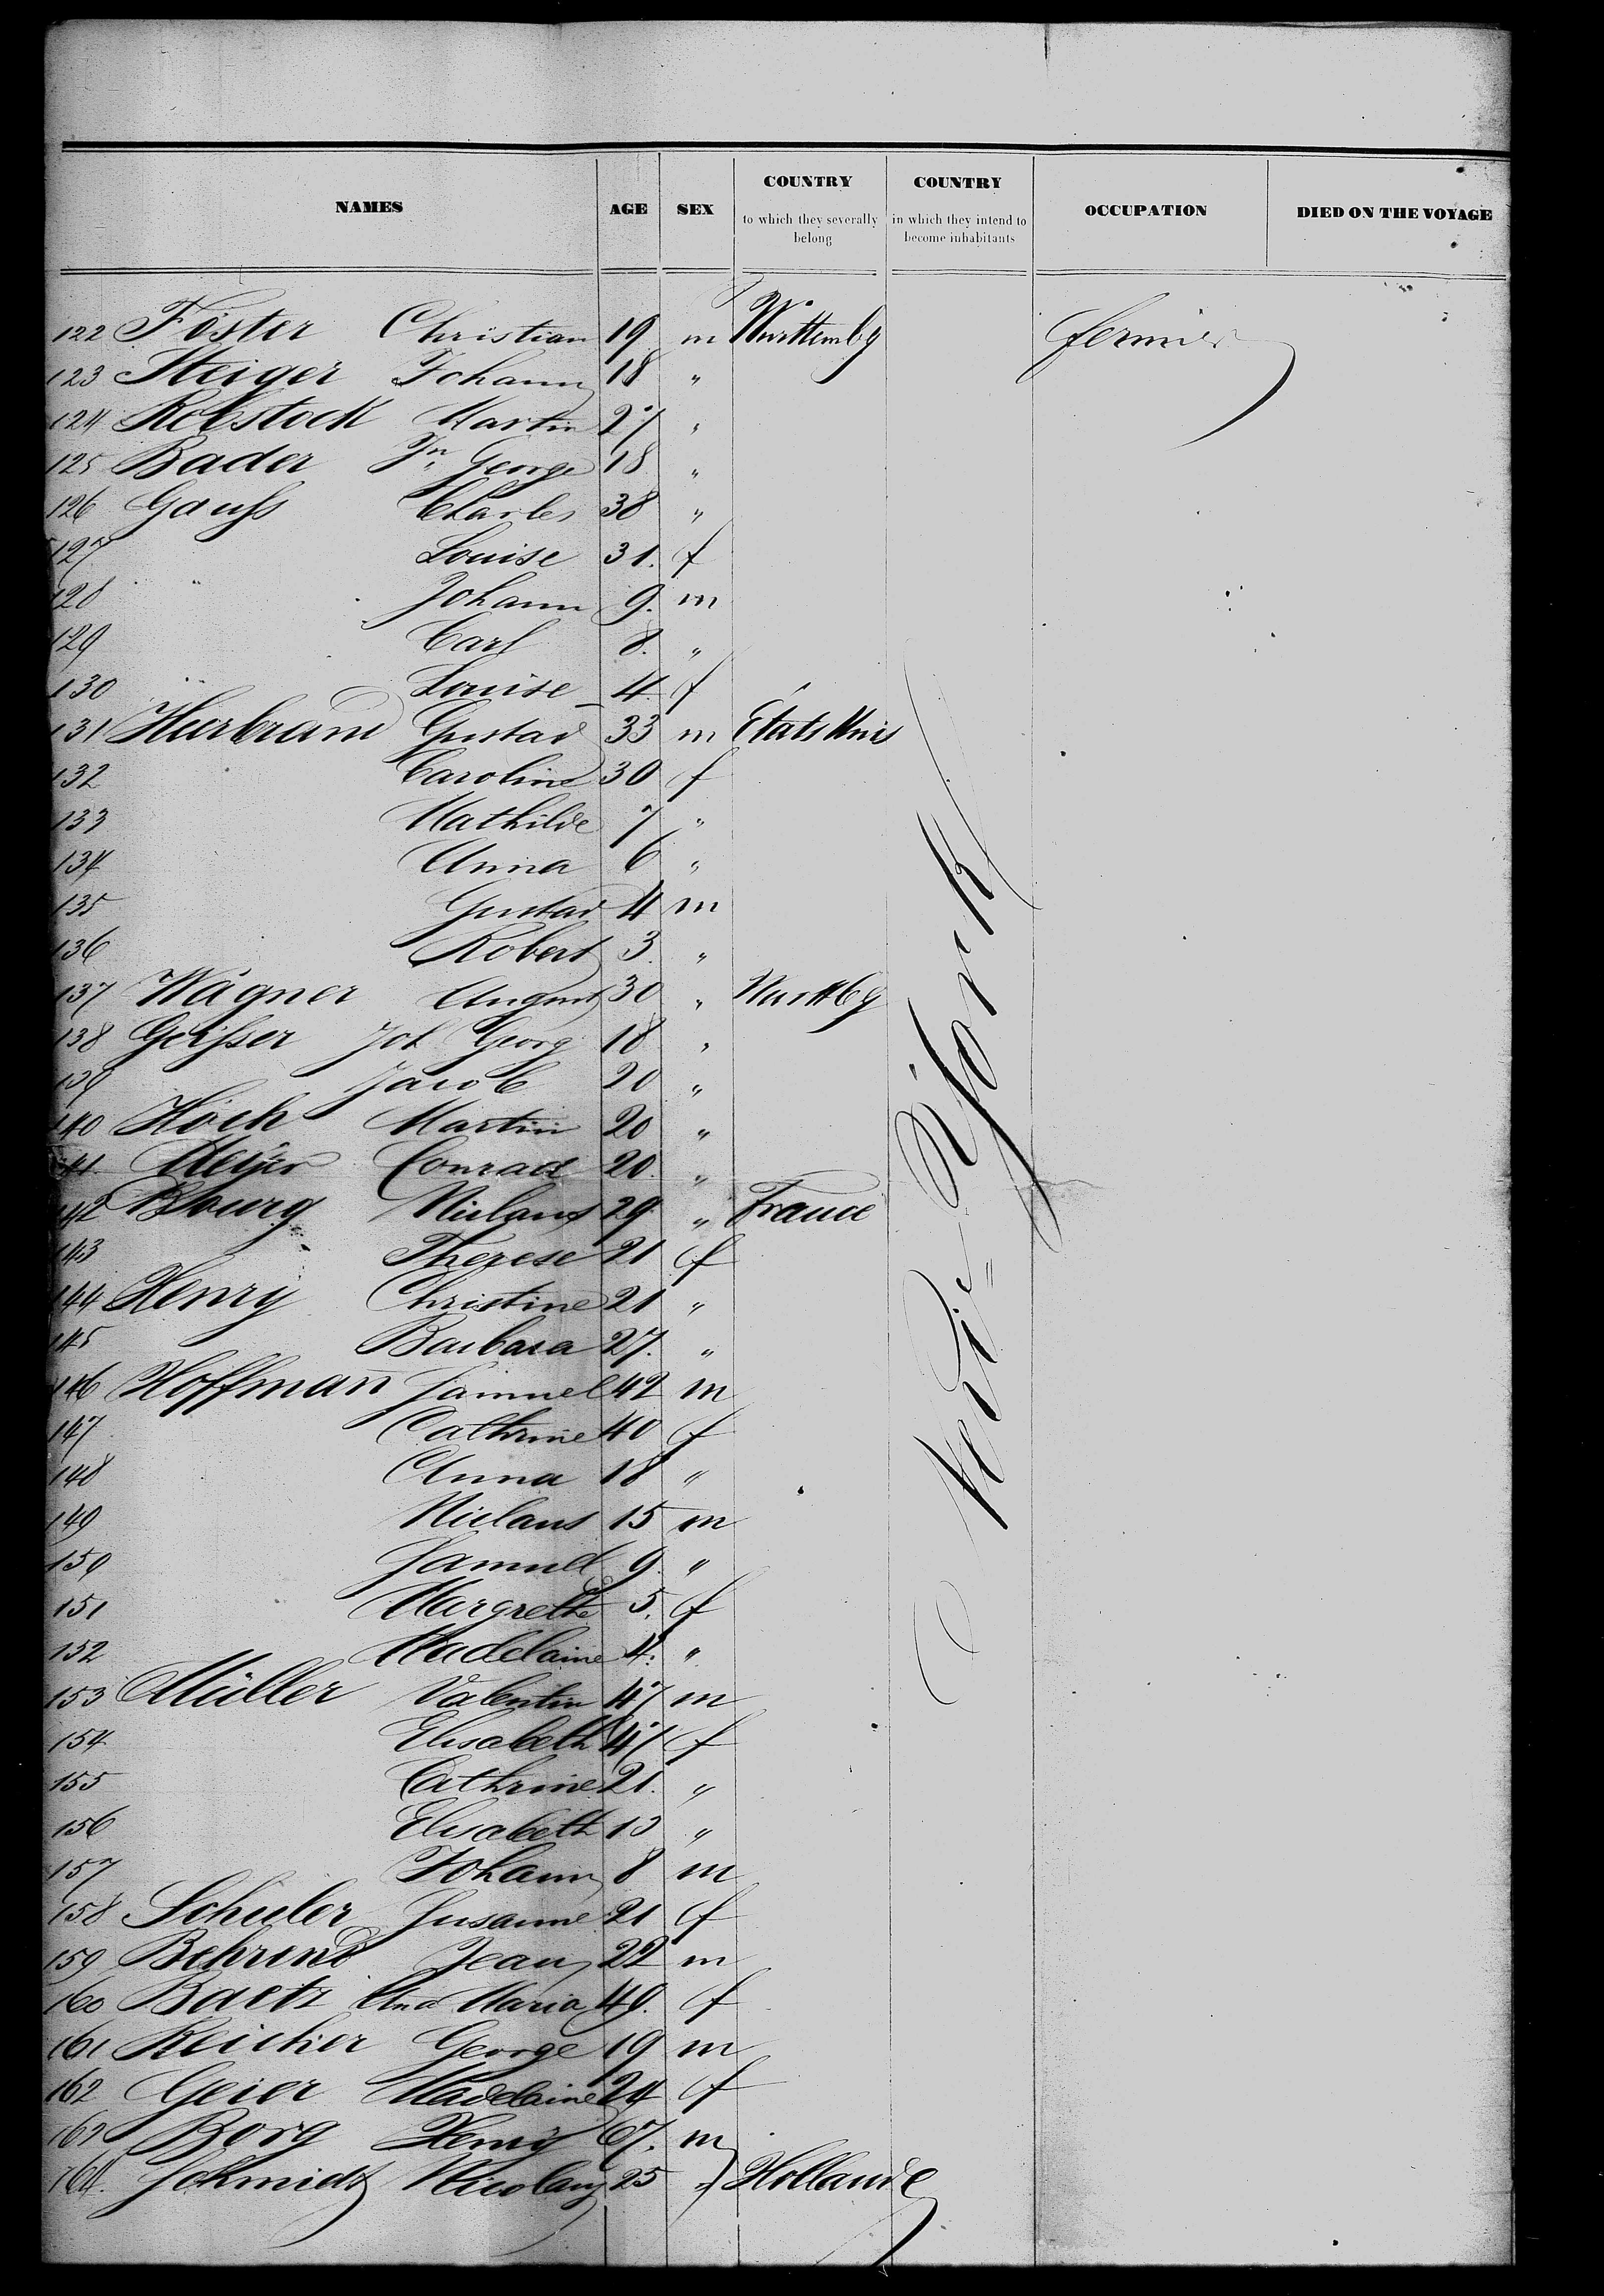 NAMES AGE SEX COUNTRY to which they severally belong COUNTRY in which they intend to become inhabitants OCCUPATION DIED ON THE VOYAGE
122 Föster Christian 19 m Württembg fermier
123 Steiger Johann 18 "
124 Rebstock Martin 27 "
125 Bader Jn George 18 "
126 Gauss Charles 38 "
127 Louise 31. f
128 " Johann 9. m
129 Carl 8. "
130 " Louise 4. f
131 Gustav 33 m Etats Unis
132 Caroline 30 f
133 Mathilde 7 "
134 Anna 6 "
135 Gustav 4 m
136 Robert 3. "
137 Wagner August 30 " Wurttbg
138 Geisser Joh Georg 18 "
139 Jacob 20 "
140 Hoch Martin 20 "
141 Meyer Conrad 20. "
142 Bourg Niclaus 29 " France
143 Therese 21 f
144 Henry Christine 21 "
145 Barbara 27. "
146 Hoffman Samuel 42 m
147 Cathrine 40 f
148 Anna 18 "
149 Niclaus 15 m
150 Samuel 9. "
151 Margrethe 5. f
152 Madelaine 4. "
153 Müller Valentin 47 m
154 Elisabeth 47 f
155 Cathrine 21. "
156 Elisabeth 13 "
157 Johann 8 m
158 Schuler Susanne 21 f
159 Behrend Jean 22 m
160 Baetz Ana Maria 49. f
161 Reicher George 19 m
162 Geier Madelaine 24 f
163 Borg Henry 67. m
164. Schmidt Nicolaus 25 " Hollande
New=York